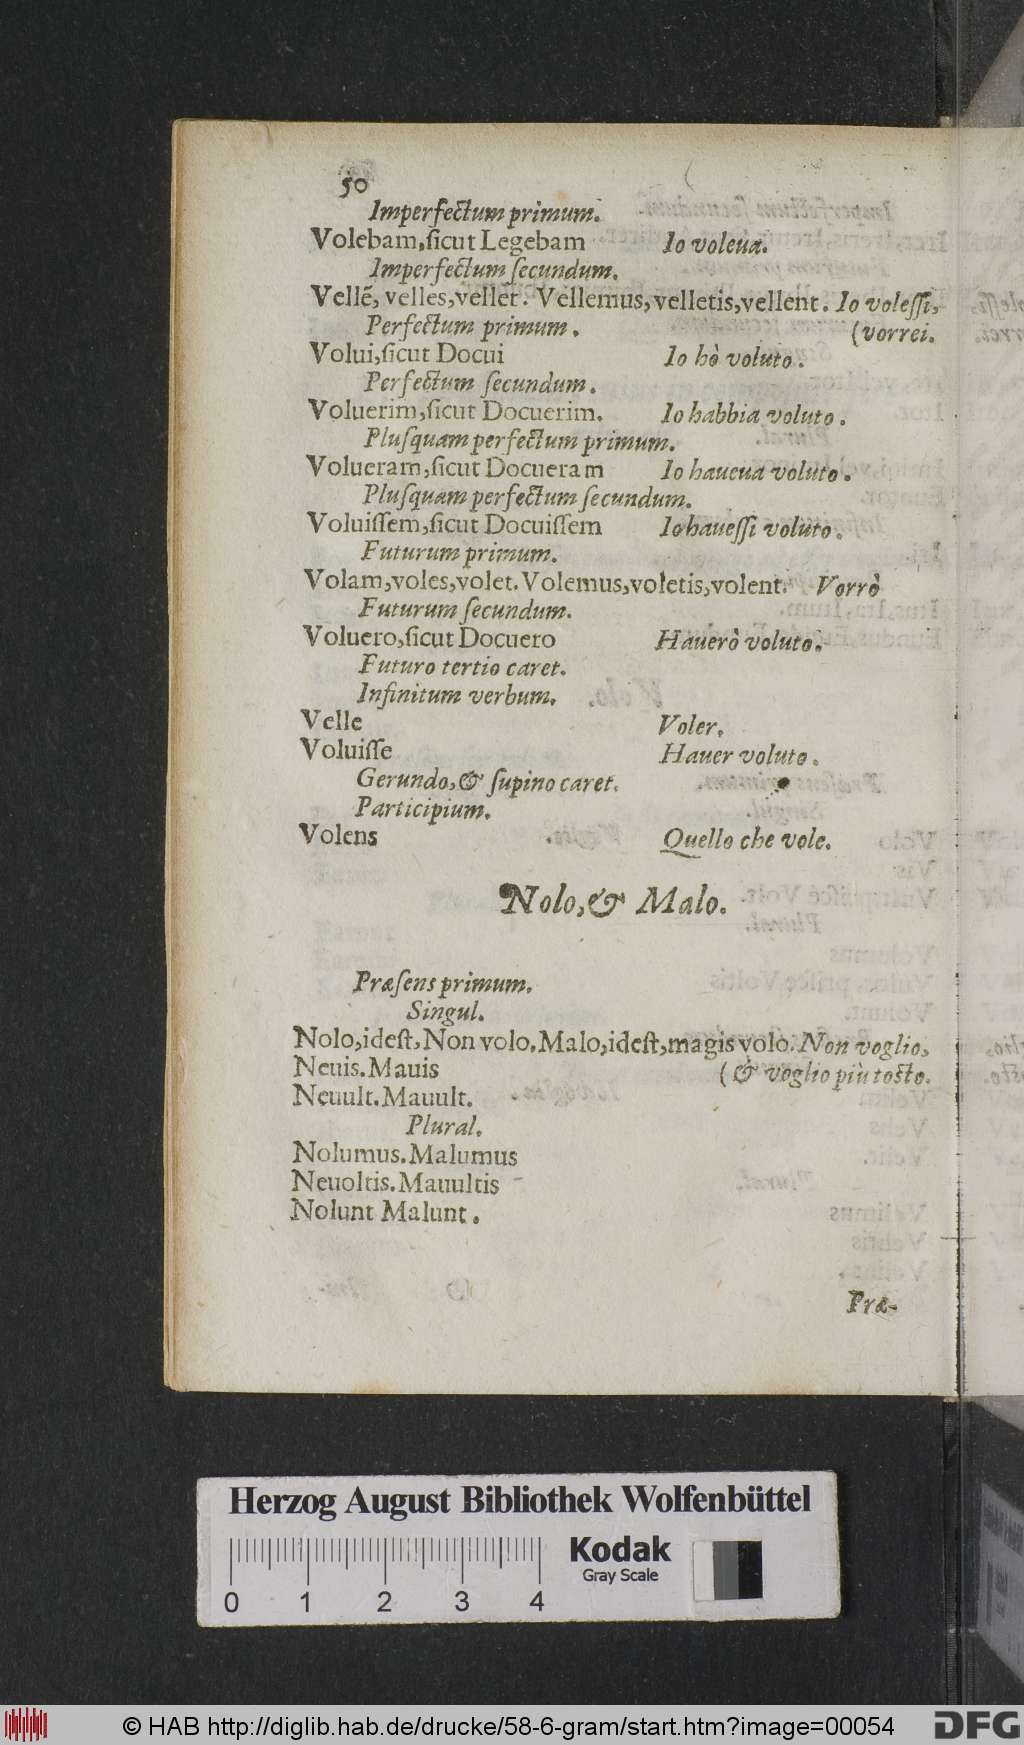 50
Imperfectum primum.
Volebam,ſicut Legebam Io voleua.
Imperfectum ſecundum.
Vellē, velles,vellet. Vellemus,velletis,vellent. Io voleſſi,
Perfectum primum. (vorrei.
Volui,ſicut Docui Io hò voluto.
Perfectum ſecundum.
Voluerim,ſicut Docuerim. Io habbia voluto.
Pluſquam perfectum primum.
Volueram,ſicut Docueram Io haueua voluto.
Pluſquam perfectum ſecundum.
Voluiſſem,ſicut Docuiſſem Io haueſſi voluto.
Futurum primum.
Volam,voles,volet. Volemus,voletis,volent. Vorrò
Futurum ſecundum.
Voluero,ſicut Docuero Hauerò voluto.
Futuro tertio caret.
Infinitum verbum.
Velle Voler.
Voluiſſe Hauer voluto.
Gerundo,& ſupino caret.
Participium.
Volens Quello che vole.
Nolo,& Malo.
Præſens primum.
Singul.
Nolo,ideſt,Non volo.Malo,ideſt,magis volo. Non voglio,
Neuis.Mauis (& voglio più toſto.
Neuult.Mauult.
Plural.
Nolumus.Malumus
Neuoltis.Mauultis
Nolunt Malunt.
Præ-
Herzog August Bibliothek Wolfenbüttel
Kodak
Gray Scale
0 1 2 3 4
© HAB http://diglib.hab.de/drucke/58-6-gram/start.htm?image=00054
DFG